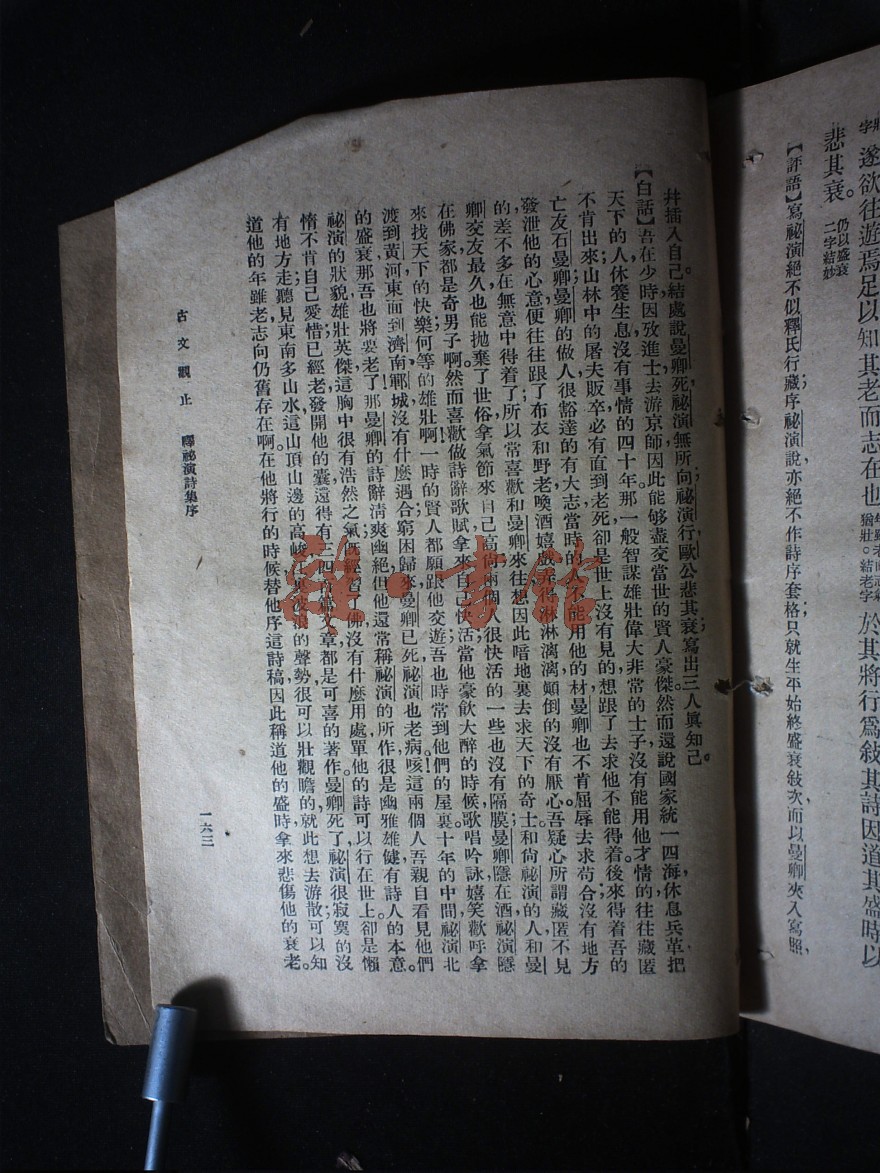 狀字
遂欲往遊焉足以知其老而志在也
猶壯。結老字
於其將行爲敍其詩因道其盛時以
悲其衰。
仍以盛衰
二字結妙
【評語】寫祕演絕不似釋氏行藏序祕演說亦絕不作詩序套格只就生平始終盛衰敍次而以曼卿夾入寫照,
幷插入自己。結處說曼卿死,祕演無所向;祕演行,歐公悲其衰寫出三人眞知己。
【白話】吾在少時因攷進士去游京師因此能够盡交當世的賢人豪傑然而還說國家統一四海,休息兵革把
天下的人休養生息沒有事情的四十年那一般智謀雄壯偉大非常的士子沒有能用他才情的往往藏匿
不肯出來山林中的屠夫販卒必有直到老死卻是世上沒有見的想跟了去求他不能得着後來得着吾的
亡友石曼卿曼卿的做人很豁達的有大志當時的不能用他的材曼卿也不肯屈辱去求苟合沒有地方
發泄他的心意便往往跟了布衣和野老喚酒嬉戲淋淋漓漓顚倒的沒有厭心。吾疑心所謂藏匿不見
的差不多在無意中得着了所以常喜歡和曼卿來往想因此暗地裏去求天下的奇士和尙祕演的人和曼
卿交友最久也能拋棄了世俗拿氣節來自己高尙兩個人很快活的一些也沒有隔膜曼卿隱在酒祕演隱
在佛家都是奇男子啊然而喜歡做詩辭歌賦拿來自己快活當他豪飲大醉的時候歌唱吟詠嬉笑歡呼拿
來找天下的快樂何等的雄壯啊!一時的賢人都願跟他交遊吾也時常到他們的屋裏。十年的中間祕演北
渡到黃河東面到濟南鄆城沒有什麼遇合窮困歸來曼卿已死祕演也老病咳這兩個人吾親自看見他們
的盛衰那吾也將要老了那曼卿的詩辭淸爽幽絕但他還常稱祕演的所作很是幽雅雄健有詩人的本意。
祕演的狀貌雄壯英傑這胸中很有浩然之氣旣經習了佛沒有什麼用處單他的詩可以行在世上。卻是懶
惰不肯自己愛惜已經老發開他的囊還得有三四百篇文章都是可喜的著作。曼卿死了祕演很寂寞的沒
有地方走聽見東南多山水這山頂山邊的高峻波浪的聲勢很可以壯觀瞻的,就此想去游散可以知
道他的年雖老志向仍舊存在啊在他將行的時候替他序這詩稿因此稱道他的盛時拿來悲傷他的衰老。
古文觀止　釋祕演詩集序
一六三